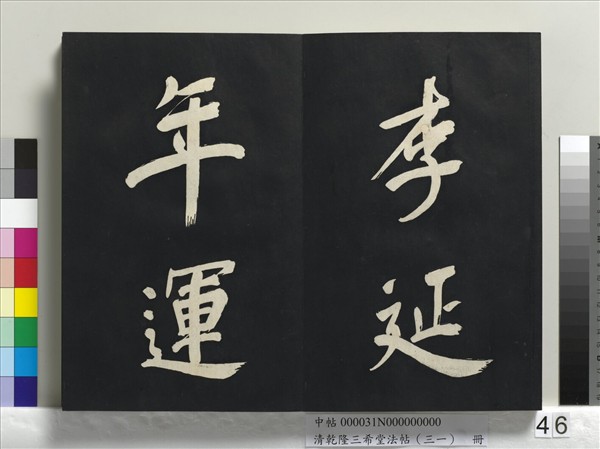 李延
年運
中帖 000031N000000000
清乾隆三希堂法帖（三一） 冊
46